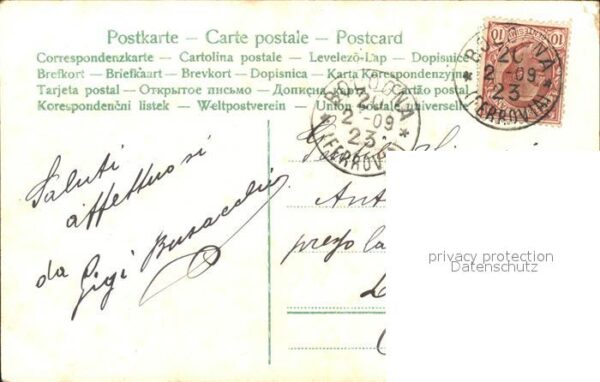 Postkarte – Carte postale – Postcard
Correspondenzkarte – Cartolina postale – Levelező-Lap – Dopisnice
Brefkort – Briefkaart – Brevkort – Dopisnica – Karta Korespondencyjna
Tarjeta postal – Открытое письмо – Дописна карта – Cartão postal
Korespondenční listek – Weltpostverein – Union postale universelle
10 10
BOLOGNA
2-09
23
(FERROVIA)
BOLOGNA
2-09
23
(FERROVIA)
Saluti
affettuosi
da Gigi
Ant
presso la
privacy protection
Datenschutz